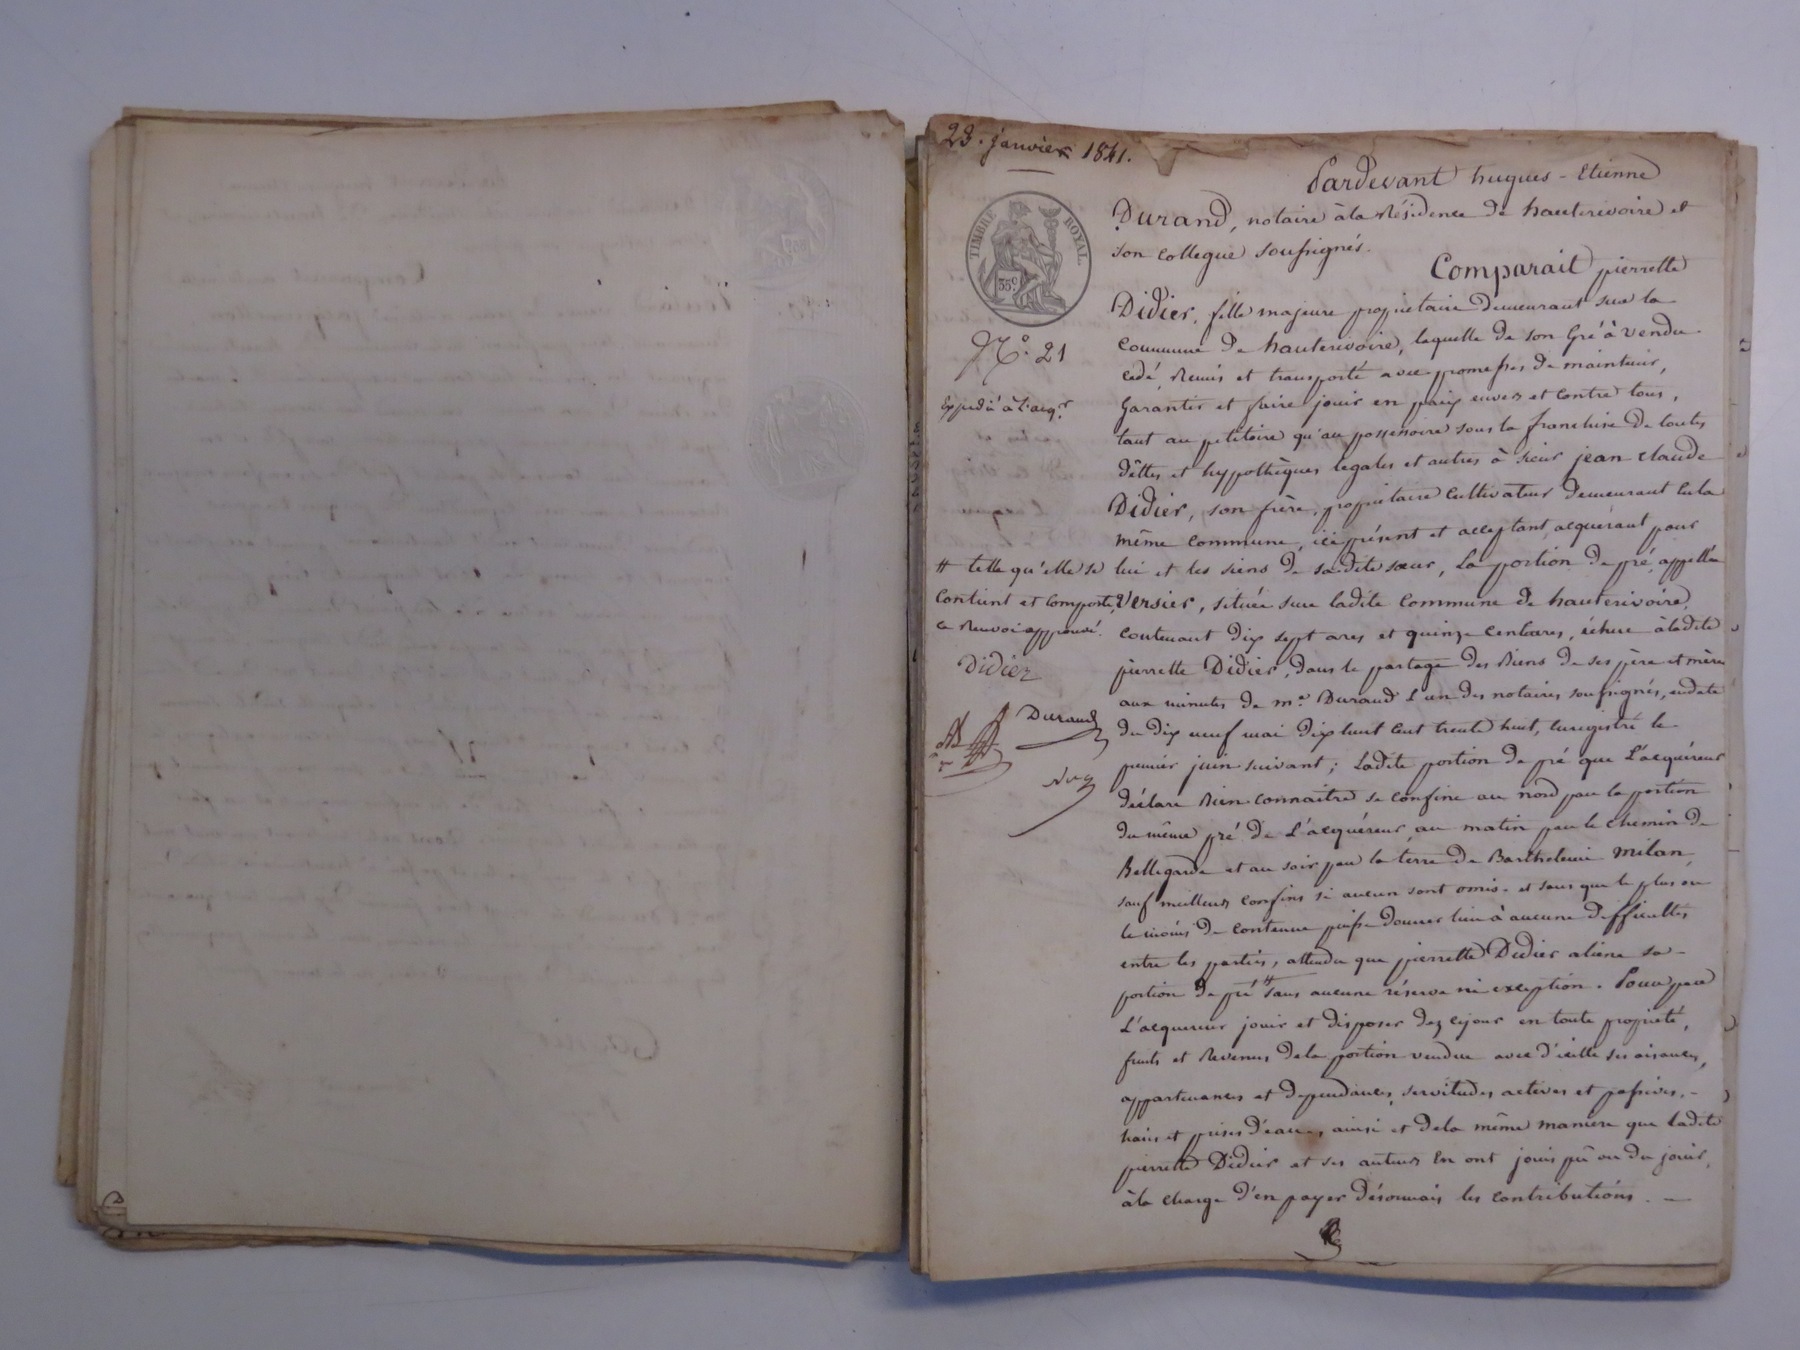 23. janvier 1841.
TIMBRE ROYAL.
35c.
No. 21
Expédié à l'aqr.
# telle qu'elle se
contient et comporte,
ce Renvoi approuvé.
Didier
Durand
Nre
Pardevant hugues-Etienne
Durand, notaire à la Résidence de hauterivoire et
son collegue soussignés.
Comparait pierrette
Didier, fille majeure propriétaire demeurant sur la
commune de hauterivoire, laquelle de son Gré à vendu
cédé, Remis et transporté avec promesses de maintenir,
Garantir et faire jouir en paix envers et contre tous,
tant au petitoire qu'au possessoire sous la franchise de toutes
dêttes et hypothèques legales et autres à sieur jean claude
Didier, son frère, propriétaire cultivateur demeurant en la
même commune, ici présent et acceptant, acquérant pour
lui et les siens de sadite sœur, La portion de pré, appellée
Versier, située sur ladite commune de hauterivoire,
contenant dix sept ares et quinze centiares, échue à ladite
pierrette Didier, dans le partage des Biens de ses père et mère
aux minutes de me. Durand l'un des notaires soussignés, en date
du dix neuf mai dix huit cent trente huit, enregistré le
premier juin suivant; Ladite portion de pré que L'acquéreur
déclare Bien connaitre se confine au nord par la portion
du même pré de L'acquéreur, au matin par le chemin de
Bellegarde et au soir par la terre de Barthelemi Milan,
sauf meilleurs confins si aucun sont omis. et sans que le plus ou
le moins de contenue puisse donner lieu à aucune difficultés
entre les parties, attendu que pierrette Didier aliene sa
portion de pré # sans aucune réserve ni exception. Pour par
L'acquereur jouir et disposer dez cejour en toute propriété,
fruits et Revenus dela portion vendue avec d'icelle ses aisances,
appartenances et dependances, servitudes actives et passives,
haies et prises d'eaux, ainsi et dela même maniere que ladite
pierrette Didier et ses auteurs en ont joui pû ou du jouir,
à la charge d'en payer désormais les contributions.